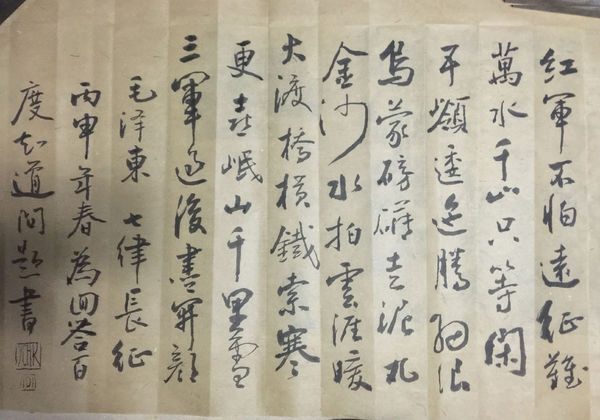 红軍不怕遠征難
萬水千山只等閑
五嶺逶迤騰細浪
烏蒙磅礴走泥丸
金沙水拍雲涯暖
大渡橋横鐵索寒
更喜岷山千里雪
三軍过後盡開颜
毛泽東七律長征
丙申年春為回答百
度知道问题書